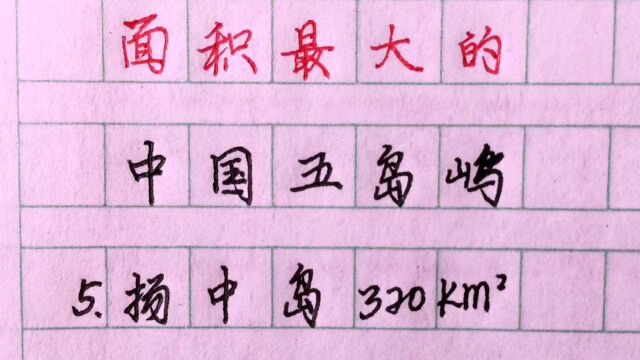 面积最大的
中国五岛屿
5.扬中岛320km²